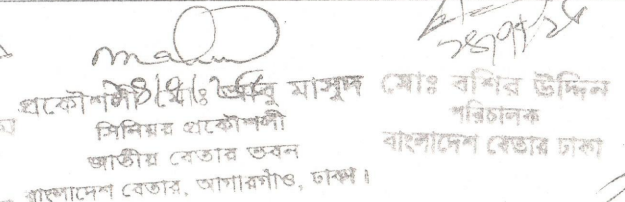 প্রকৌশলী মোঃ আবু মাসুদ
সিনিয়র প্রকৌশলী
জাতীয় বেতার ভবন
বাংলাদেশ বেতার, আগারগাঁও, ঢাকা।
মোঃ বশির উদ্দিন
পরিচালক
বাংলাদেশ বেতার ঢাকা